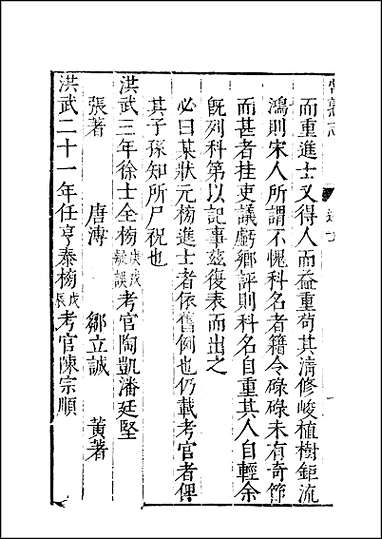 而重進士又得人而益重苟其清修峻植樹鉅流
鴻則宋人所謂不愧科名者籍令碌碌未有奇節
而甚者挂吏議虧鄉評則科名自重其人自輕余
旣列科第以記事茲復表而出之
必曰某狀元榜進士者依舊例也仍載考官者俾
其子孫知所尸祝也
洪武三年徐士全榜庚戌疑誤考官陶凱潘廷堅
張著 唐溥 鄒立誠 黃著
洪武二十一年任亨泰榜戊辰考官陳宗順